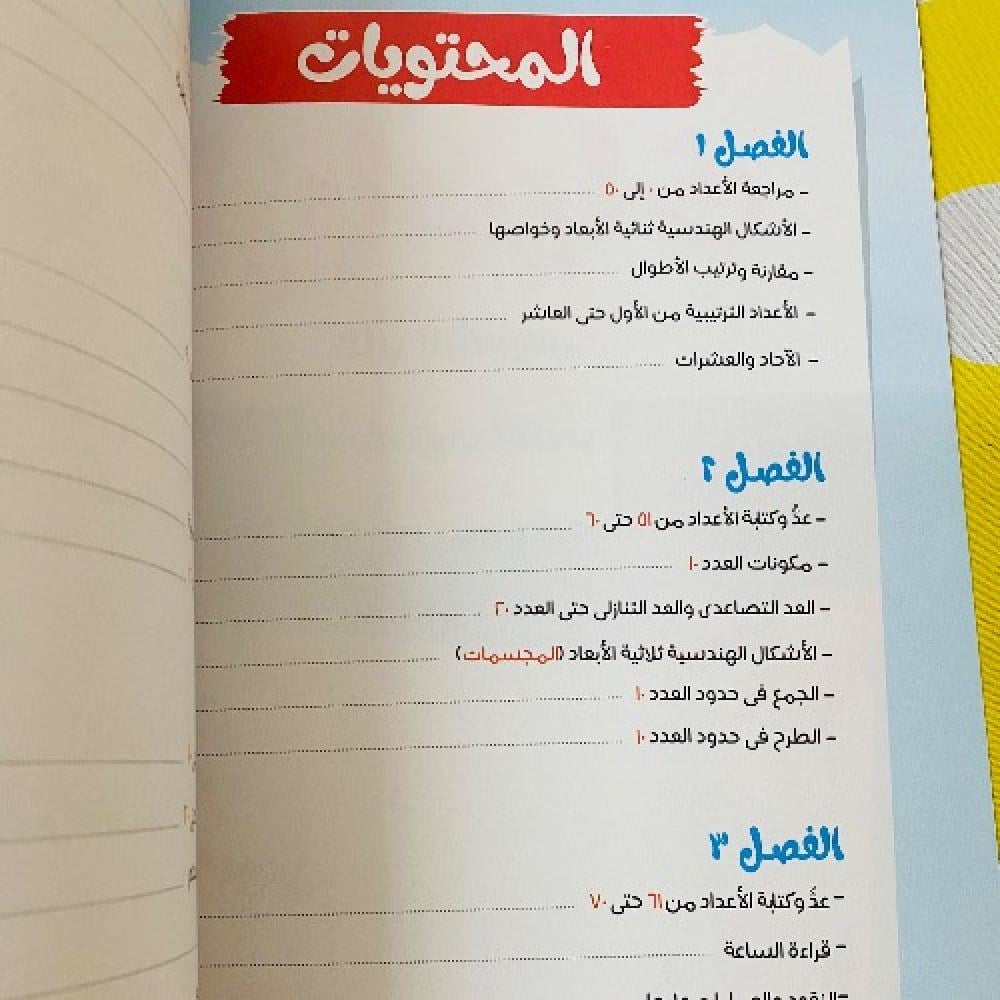 المحتويات
الفصل ١
- مراجعة الأعداد من ٠ إلى ٥٠
- الأشكال الهندسية ثنائية الأبعاد وخواصها
- مقارنة وترتيب الأطوال
- الأعداد الترتيبية من الأول حتى العاشر
- الآحاد والعشرات
الفصل ٢
- عدُّ وكتابة الأعداد من ٥١ حتى ٦٠
- مكونات العدد ١٠
- العد التصاعدى والعد التنازلى حتى العدد ٢٠
- الأشكال الهندسية ثلاثية الأبعاد (المجسمات)
- الجمع فى حدود العدد ١٠
- الطرح فى حدود العدد ١٠
الفصل ٣
- عدُّ وكتابة الأعداد من ٦١ حتى ٧٠
- قراءة الساعة